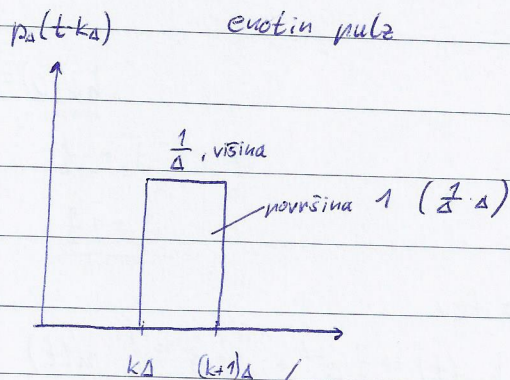 p_Δ(t-kΔ) enotin pulz
1/Δ, višina
površina 1 (1/Δ · Δ)
kΔ (k+1)Δ